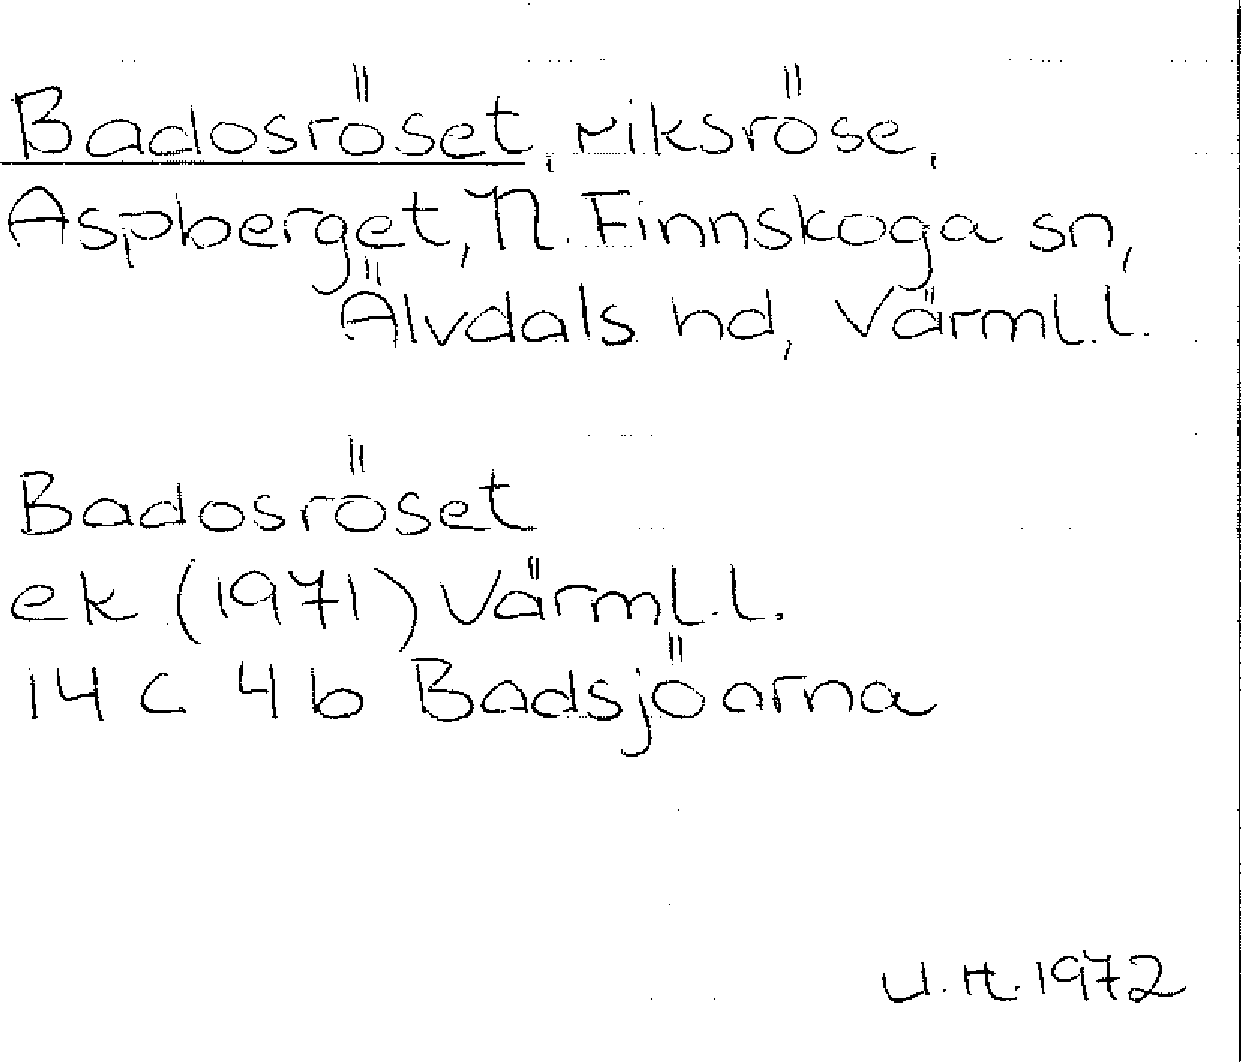 Badosröset, riksröse,
Aspberget, N. Finnskoga sn,
Älvdals hd, Värml.l.
Badosröset
ek (1971) Värml.l.
14 C 4 b Badsjöarna
U.H. 1972